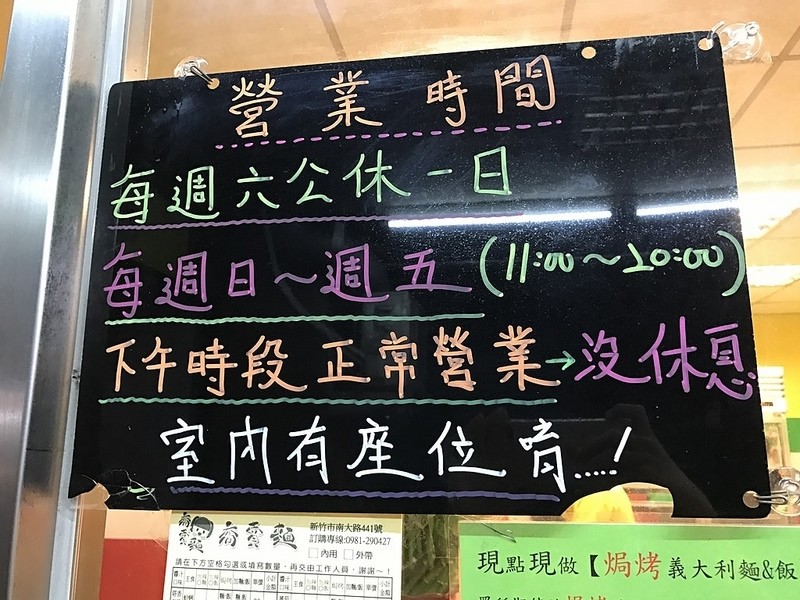 營業時間
每週六公休一日
每週日～週五(11:00～20:00)
下午時段正常營業→沒休息
室內有座位唷.....!
新竹市南大路441號
訂購專線:0981-290427
□內用 □外帶
請在下方空格勾選或填寫數量，再交由工作人員，謝謝～！
現點現做【焗烤義大利麵&飯